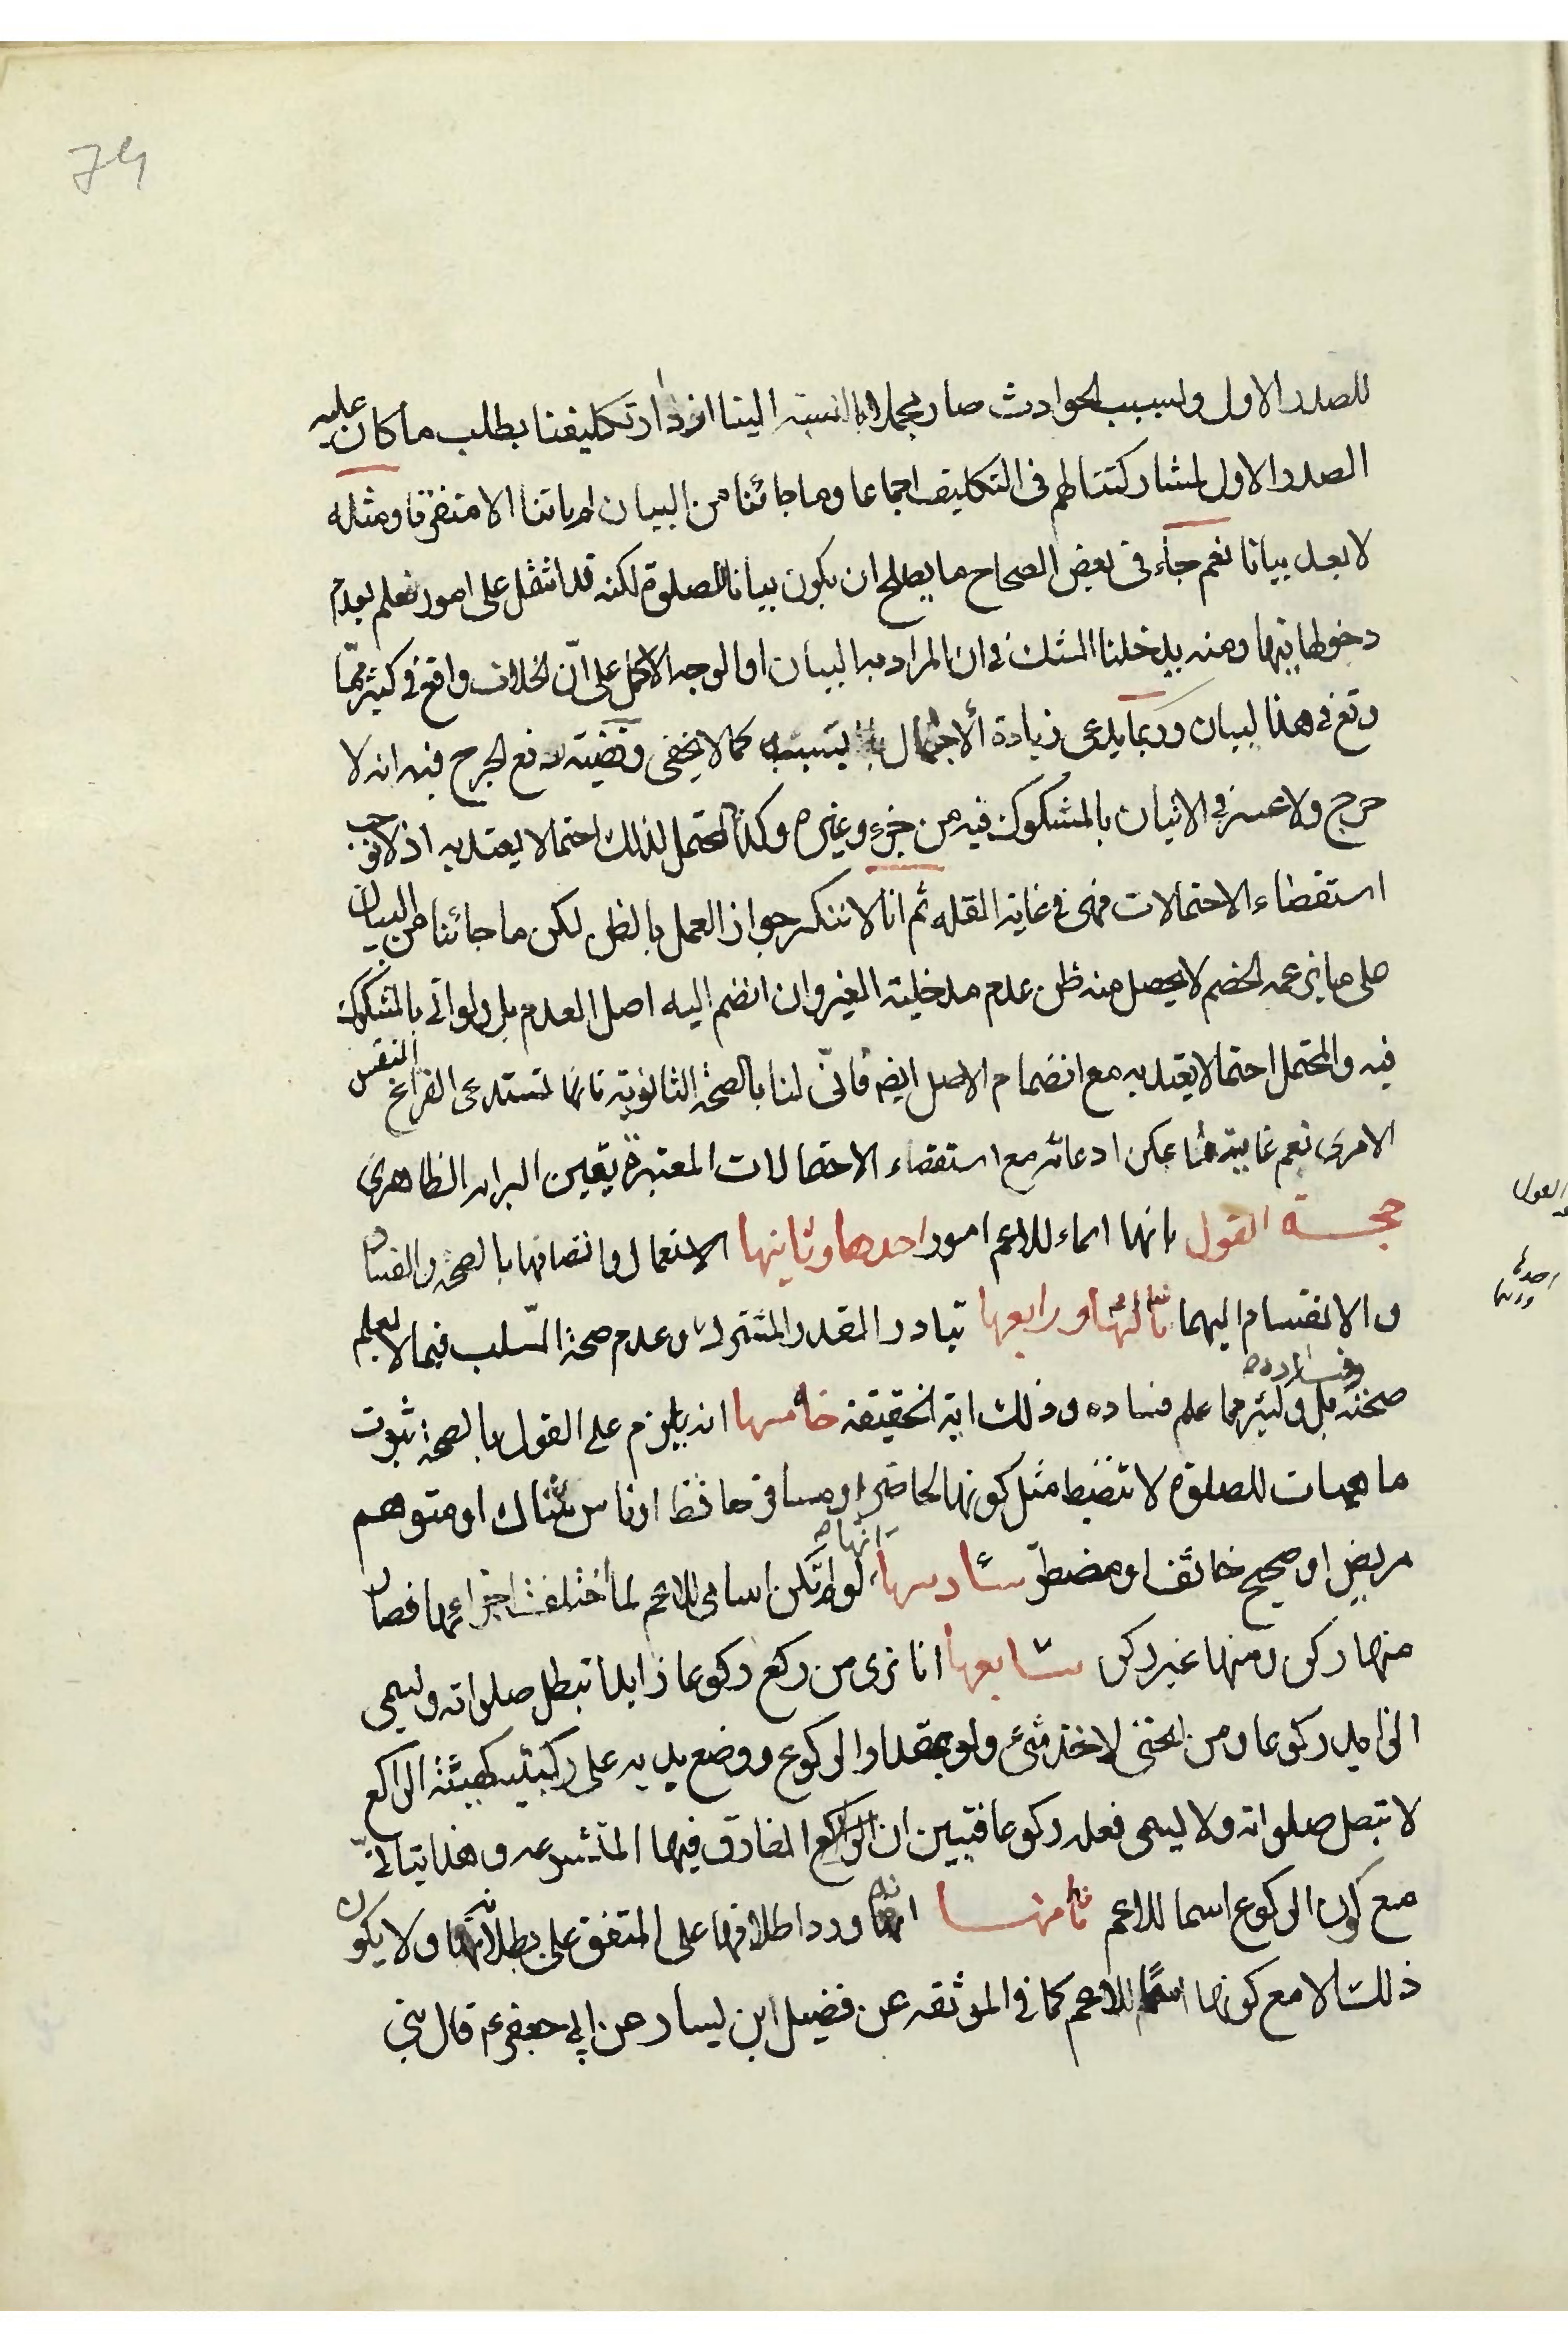 74
للصدر الاول ولسبب الحوادث صار مجملا بالنسبة الينا از دار تكليفنا بطلب ما كان عليه
الصدر الاول لمشاركتنا لهم فى التكليف اجماعا وما جائنا من البيان لم ياتنا الا متفرقا ومثله
لا يعد بيانا نعم جاء فى بعض الصحاح ما يصلح ان يكون بيانا للصلوة لكنه قد اشتمل على امور نعلم بعدم
دخولها فيها ومنه يدخلنا الشك فى ان المراد به البيان او الوجه الاكمل على انّ الخلاف واقع فى كثير ممّا
وقع فى هذا البيان وربما يدعى زيادة الاجمال بسببه كما لا يخفى وقضيته دفع الحرج فيه انه لا
حرج ولا عسر فى الاتيان بالمشكوك فيه من جزء وغيره وكذا المحتمل لذلك احتمالا يعتد به اذ لا نوجب
استقصاء الاحتمالات فهى فى غاية القله ثم انا لا ننكر جواز العمل بالظن لكن ما جائنا من البيان
على ما يزعمه الخصم لا يحصل منه ظن عدم مدخلية الغير وان انضم اليه اصل العدم بل ولو اتى بالمشكوك
فيه والمحتمل احتمالا يعتد به مع انضمام الاصل ايضه فانّى لنا بالصحة الثانوية فانها تستدعى الفراغ النفس
الامرى نعم غاية ما يمكن ادعائه مع استقصاء الاحتمالات المعتبرة يقين البرائه الظاهرى
حجة القول بانها اسماء للاعم امور احدها وثانيها الاستعمال واتصافها بالصحة والفساد
والانقسام اليهما ثالثها ورابعها تبادر القدر المشترك وعدم صحة السّلب فيما لا يعلم
صحته بل وكثير مما علم فساده وذلك اية الحقيقة خامسها انه يلزم على القول بالصحة ثبوت
ماهيات للصلوة لا تنضبط مثل كونها لحاضر او مسافر حافظ او ناس شاك او متوهم
مريض او صحيح خائف او مضطرّ سادسها انها لو لم تكن اسامى للاعم لما اختلفت اجزائها فصار
منها ركن ومنها غير ركن سابعها انا نرى من ركع ركوعا زايدا تبطل صلواته ويسمى
الزايد ركوعا ومن انحنى لاخذ شىء ولو بمقدار الركوع ووضع يديه على ركبتيه كهيئة الراكع
لا تبطل صلواته ولا يسمى فعله ركوعا فتبين ان الراكع الفارق فيها المتشرعه وهذا يتاتى
مع كون الركوع اسما للاعم ثامنها انه ورد اطلاقها على المتفق على بطلانه ولا يكون
ذلك الا مع كونها اسما للاعم كما فى الموثقه عن فضيل ابن يسار عن ابى جعفر ع قال بنى